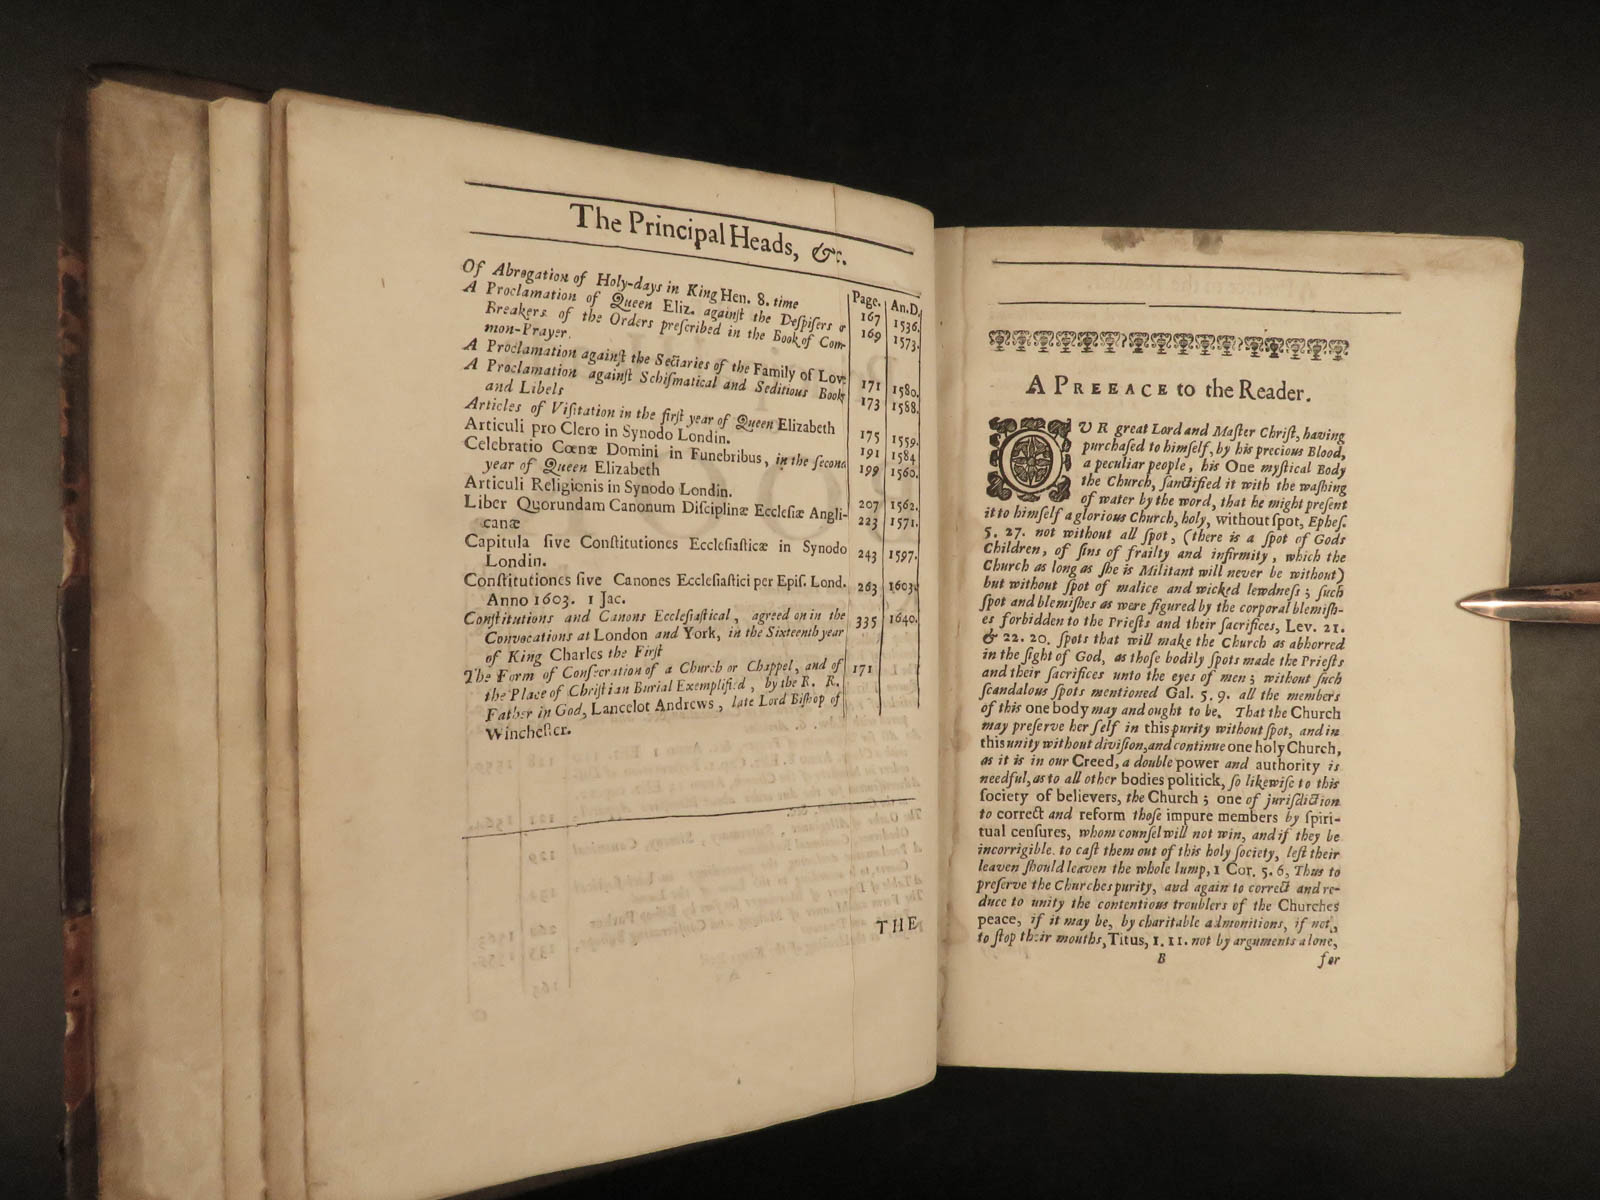 The Principal Heads, &c.
Page. An.D.
Of Abrogation of Holy-days in King Hen. 8. time 167 1536.
A Proclamation of Queen Eliz. against the Despisers or
Breakers of the Orders prescribed in the Book of Com- 169 1573.
mon-Prayer.
A Proclamation against the Sectaries of the Family of Love 171 1580.
A Proclamation against Schismatical and Seditious Books 173 1588.
and Libels
Articles of Visitation in the first year of Queen Elizabeth 175 1559.
Articuli pro Clero in Synodo Londin. 191 1584
Celebratio Cœnæ Domini in Funebribus, in the second 199 1560.
year of Queen Elizabeth
Articuli Religionis in Synodo Londin. 207 1562.
Liber Quorundam Canonum Disciplinæ Ecclesiæ Angli- 223 1571.
canæ
Capitula sive Constitutiones Ecclesiasticæ in Synodo 243 1597.
Londin.
Constitutiones sive Canones Ecclesiastici per Epis. Lond. 263 1603.
Anno 1603. 1 Jac.
Constitutions and Canons Ecclesiastical, agreed on in the 335 1640.
Convocations at London and York, in the Sixteenth year
of King Charles the First
The Form of Consecration of a Church or Chappel, and of 171
the Place of Christian Burial Exemplified, by the R. R.
Father in God, Lancelot Andrews, late Lord Bishop of
Winchester.
THE
A PREEACE to the Reader.
OUR great Lord and Master Christ, having
purchased to himself, by his precious Blood,
a peculiar people, his One mystical Body
the Church, sanctified it with the washing
of water by the word, that he might present
it to himself a glorious Church, holy, without spot, Ephes.
5. 27. not without all spot, (there is a spot of Gods
Children, of sins of frailty and infirmity, which the
Church as long as she is Militant will never be without)
but without spot of malice and wicked lewdness; such
spot and blemishes as were figured by the corporal blemish-
es forbidden to the Priests and their sacrifices, Lev. 21.
& 22. 20. spots that will make the Church as abhorred
in the sight of God, as those bodily spots made the Priests
and their sacrifices unto the eyes of men; without such
scandalous spots mentioned Gal. 5. 9. all the members
of this one body may and ought to be. That the Church
may preserve her self in this purity without spot, and in
this unity without division, and continue one holy Church,
as it is in our Creed, a double power and authority is
needful, as to all other bodies politick, so likewise to this
society of believers, the Church; one of jurisdiction
to correct and reform those impure members by spiri-
tual censures, whom counsel will not win, and if they be
incorrigible. to cast them out of this holy society, lest their
leaven should leaven the whole lump, 1 Cor. 5. 6, Thus to
preserve the Churches purity, and again to correct and re-
duce to unity the contentious troublers of the Churches
peace, if it may be, by charitable admonitions, if not,
to stop their mouths, Titus, 1. 11. not by arguments alone,
B for